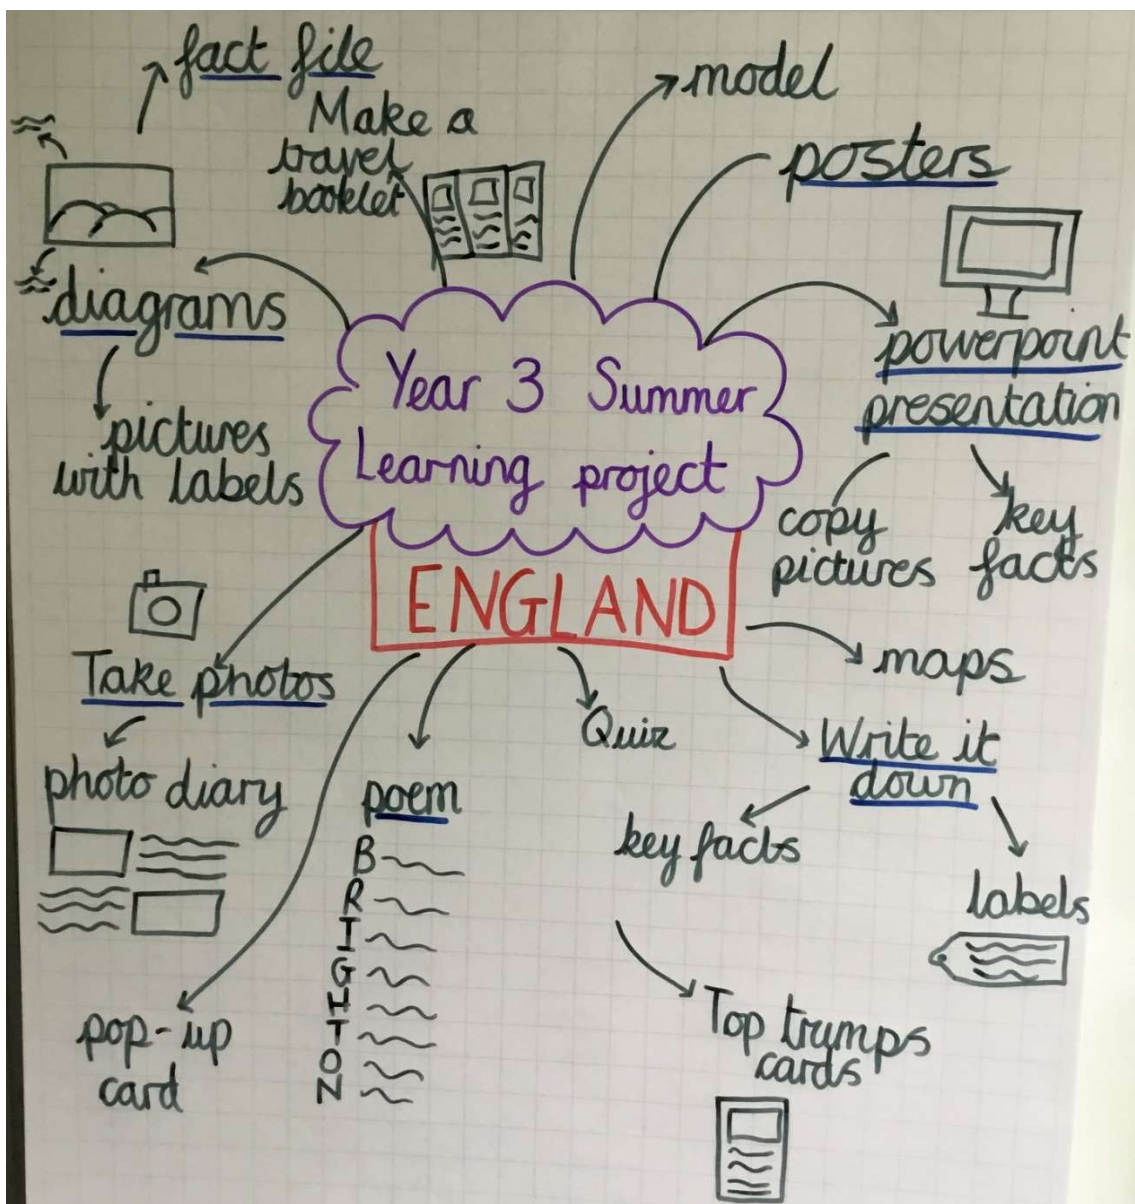 fact file
Make a
travel
booklet
model
posters
diagrams
pictures
with labels
Year 3 Summer
Learning project
ENGLAND
powerpoint
presentation
copy
pictures
key
facts
maps
Take photos
photo diary
Quiz
Write it
down
key facts
labels
poem
B
R
I
G
H
T
O
N
pop-up
card
Top trumps
cards